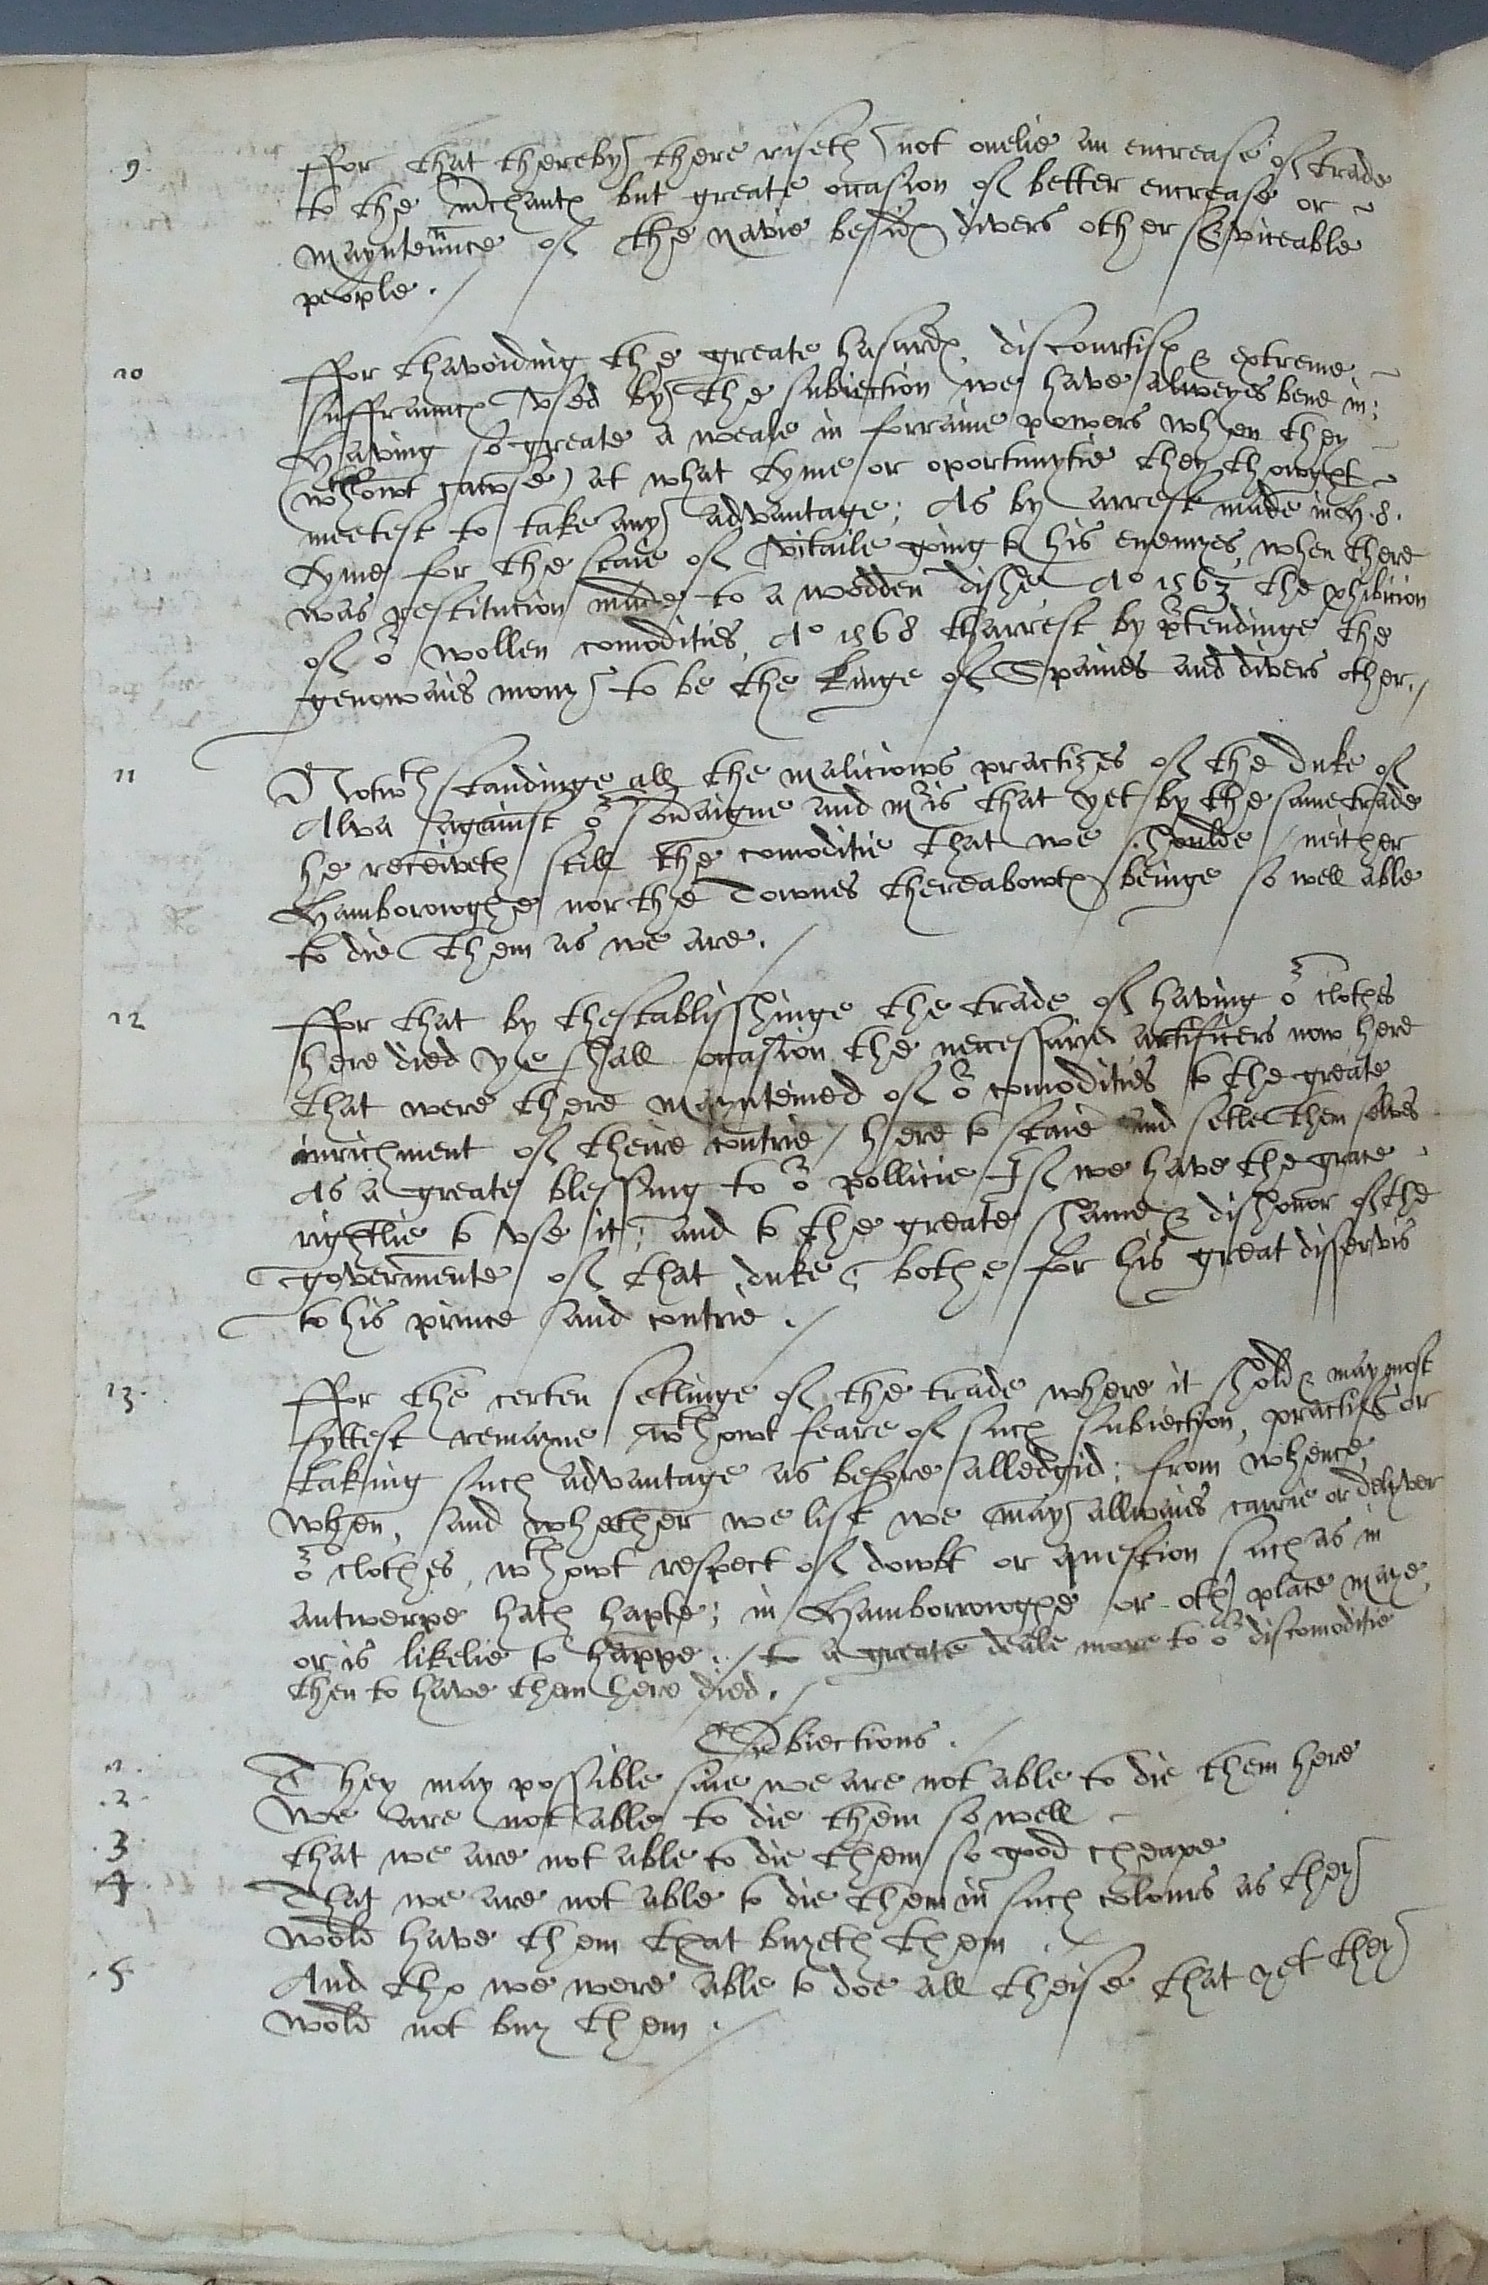 9. ffor that thereby there riseth not onelie an encrease of trade
to the mchants but greate occasion of better encrease or
mayntennce of the navie besides divers other sviceable
people.
10 ffor thavoiding the greate hasards, discourtises & extreme
suffraunces vsed by the subiection we have alweyes bene in;
Having so greate a weale in forraine powers when they
(wthowt cawse) at what tyme or oportunytie they thowght
meetest to take any advantage; As by arrest made in H.8.
tyme for the staie of vitaile going to his enemyes, when there
was restitucion made to a wodden dishe Ao 1563 the phibicion
of or wollen comodities, Ao 1568 tharrest by ptendinge the
genowaies mony to be the kinge of Spaines and divers other.
11 Notwthstandinge all the maliciows practizes of the Duke of
Alva against or soveraigne and maties that yet by the same trade
he receiveth still the comoditie that we shoulde neither
Hamborowghe nor the Townes thereabowts beinge so well able
to die them as we are.
12 ffor that by thestablisshinge the trade of having or clothes
here died yt shall occasion the necessarye artificers now here
that were there maynteined of or comodities to the greate
inrichment of theire contrie, here to staie and setle them selves
As a greate blessing to or pollicie If we have the grace
rightlie to vse it; and to the greate shame & dishonor of the
govermente of that duke; bothe for his great disservis
to his prince and contrie.
13. ffor the certen setlinge of the trade where it shold & may most
fyttest remayne wthowt feare of such subiection, practise or
taking such advantage as before alledgid; from whence,
when, and whether we list we may allwaies carrie or delyver
or clothes, wthowt respect of dowbt or question such as in
antwerpe hath hapte; in Hamborrowghe or other place maye,
or is likelie to happe. to a greate deale more to or discomoditie
then to have them here died.
Obiections.
1. They may possible saie we are not able to die them here
2. We are not able to die them so well
3. that we are not able to die them so good cheape
4. That we are not able to die them in such colours as they
wold have them that buyeth them
5. And tho we were able to doe all theise that yet they
wold not buy them.